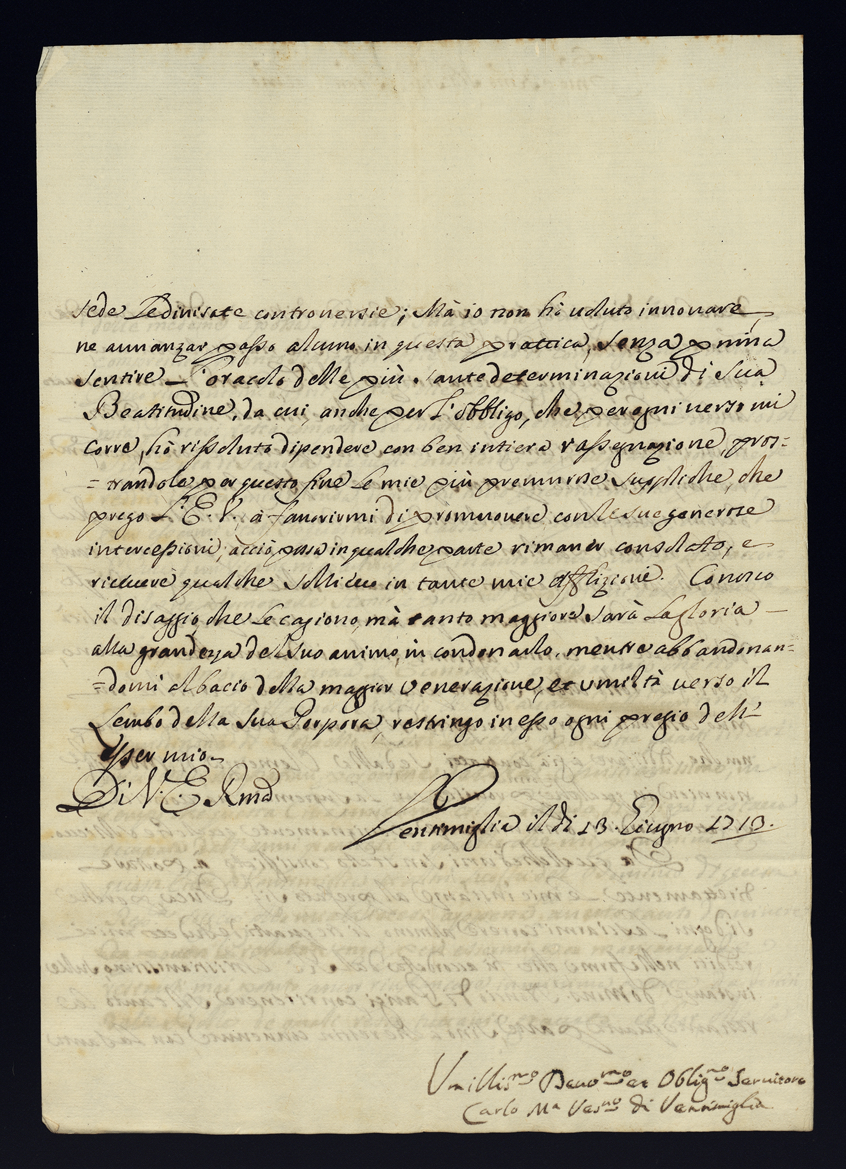 sede le divisate controversie; Mà io non hò uoluto innouare
ne auuanzar passo alcuno in questa prattica, senza pmma
sentire l'oracolo delle più sante determinazioni di Sua
Beatitudine, da cui, anche per l'obbligo, che per ogni uerso mi
corre, hò rissoluto dipendere con ben intiera rassegnazione, pros=
=trandole per questo fine le mie più premurose suppliche, che
prego l'E. V. à fauorirmi di promuouere con le sue generose
intercessioni, acciò possa in qualche parte rimaner consolato, e
riceuere qualche sollieuo in tante mie afflizioni. Conosco
il disaggio che le cagiono, mà tanto maggiore sarà la gloria
alla grandezza del suo animo, in condonarlo, mentre abbandonan=
=domi al bacio della maggior venerazione, et vmiltà uerso il
lembo della sua Porpora, restringo in esso ogni pregio dell'
esser mio
Di V. E. Rmã
Ventimiglia il di 13. Giugno 1713.
Vmilliss.mo Deuo.mo et Oblig.mo Seruitore
Carlo M.a Ves.uo di Ventimiglia